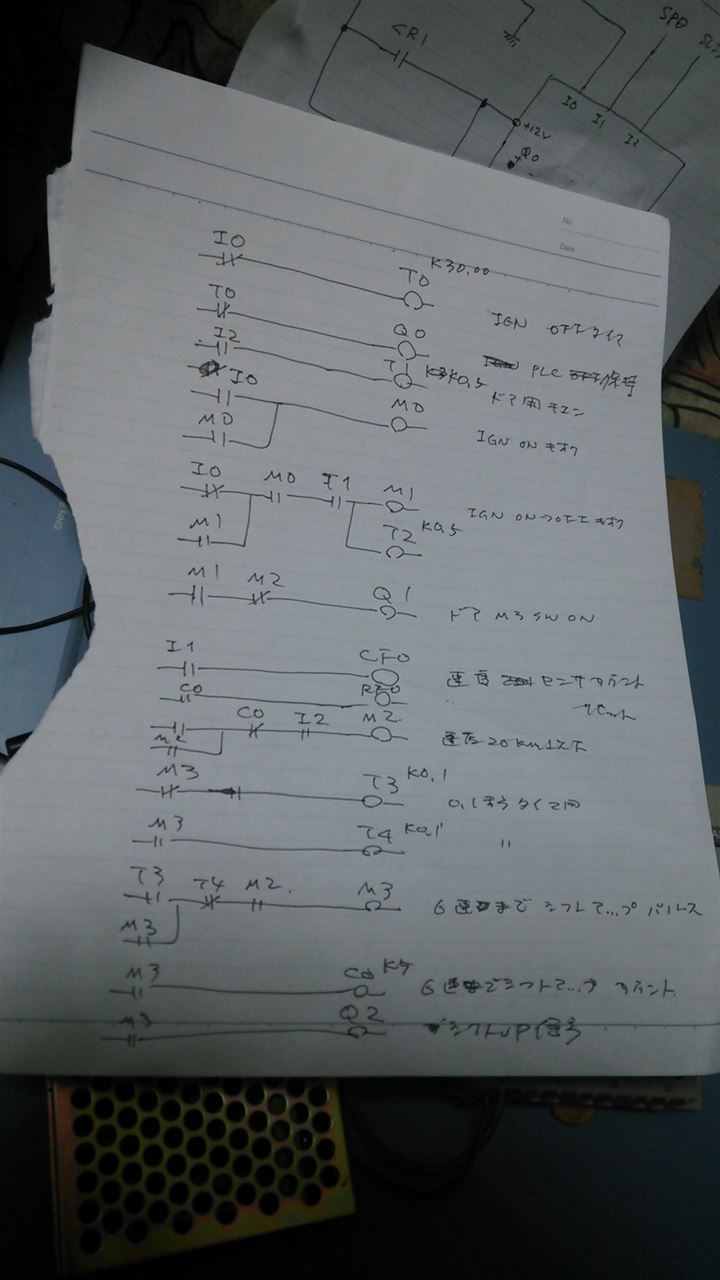 CR1
SPD
I0 I1 I2
+12V
+Q0
No.
Date
I0 T0 K30.00 IGN OFFタイマ
T0 Q0 PLC 保持
I2 T1 K0.5 ドア用
I0 M0 IGN ON キオク
M0
I0 M0 I1 M1 IGN ON→OFF キオク
M1 T2 K0.5
M1 M2 Q1 ドア M3 SW ON
I1 CF0 速度 センサカウント
C0 RF0 リセット
C0 I2 M2 速度20km以下
M2
M3 T3 K0.1 0.1
M3 T4 K0.1 〃
T3 T4 M2 M3 6速まで シフトアップ パルス
M3
M3 C0 K5 6速までシフトアップ カウント
M3 Q2 シフトUP信号